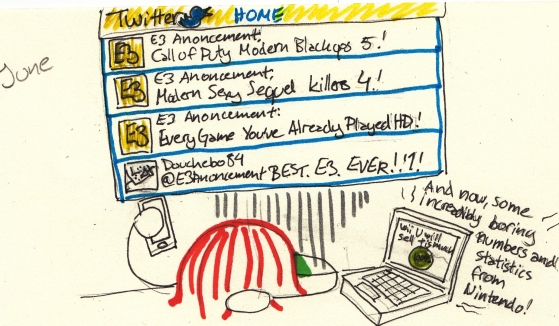 June
Twitter HOME
E3 E3 Anoncement;
Call of Duty Modern Blackops 5.!
E3 E3 Anoncement;
Modern Sexy Sequel killers 4!
E3 E3 Anoncement:
Every Game You've Already Played HD!
Douchebo84
@E3Anoncement BEST. E3. EVER!!?!
And now, some
incredibly boring
numbers and
statistics
from
Nintendo!
Wii U will